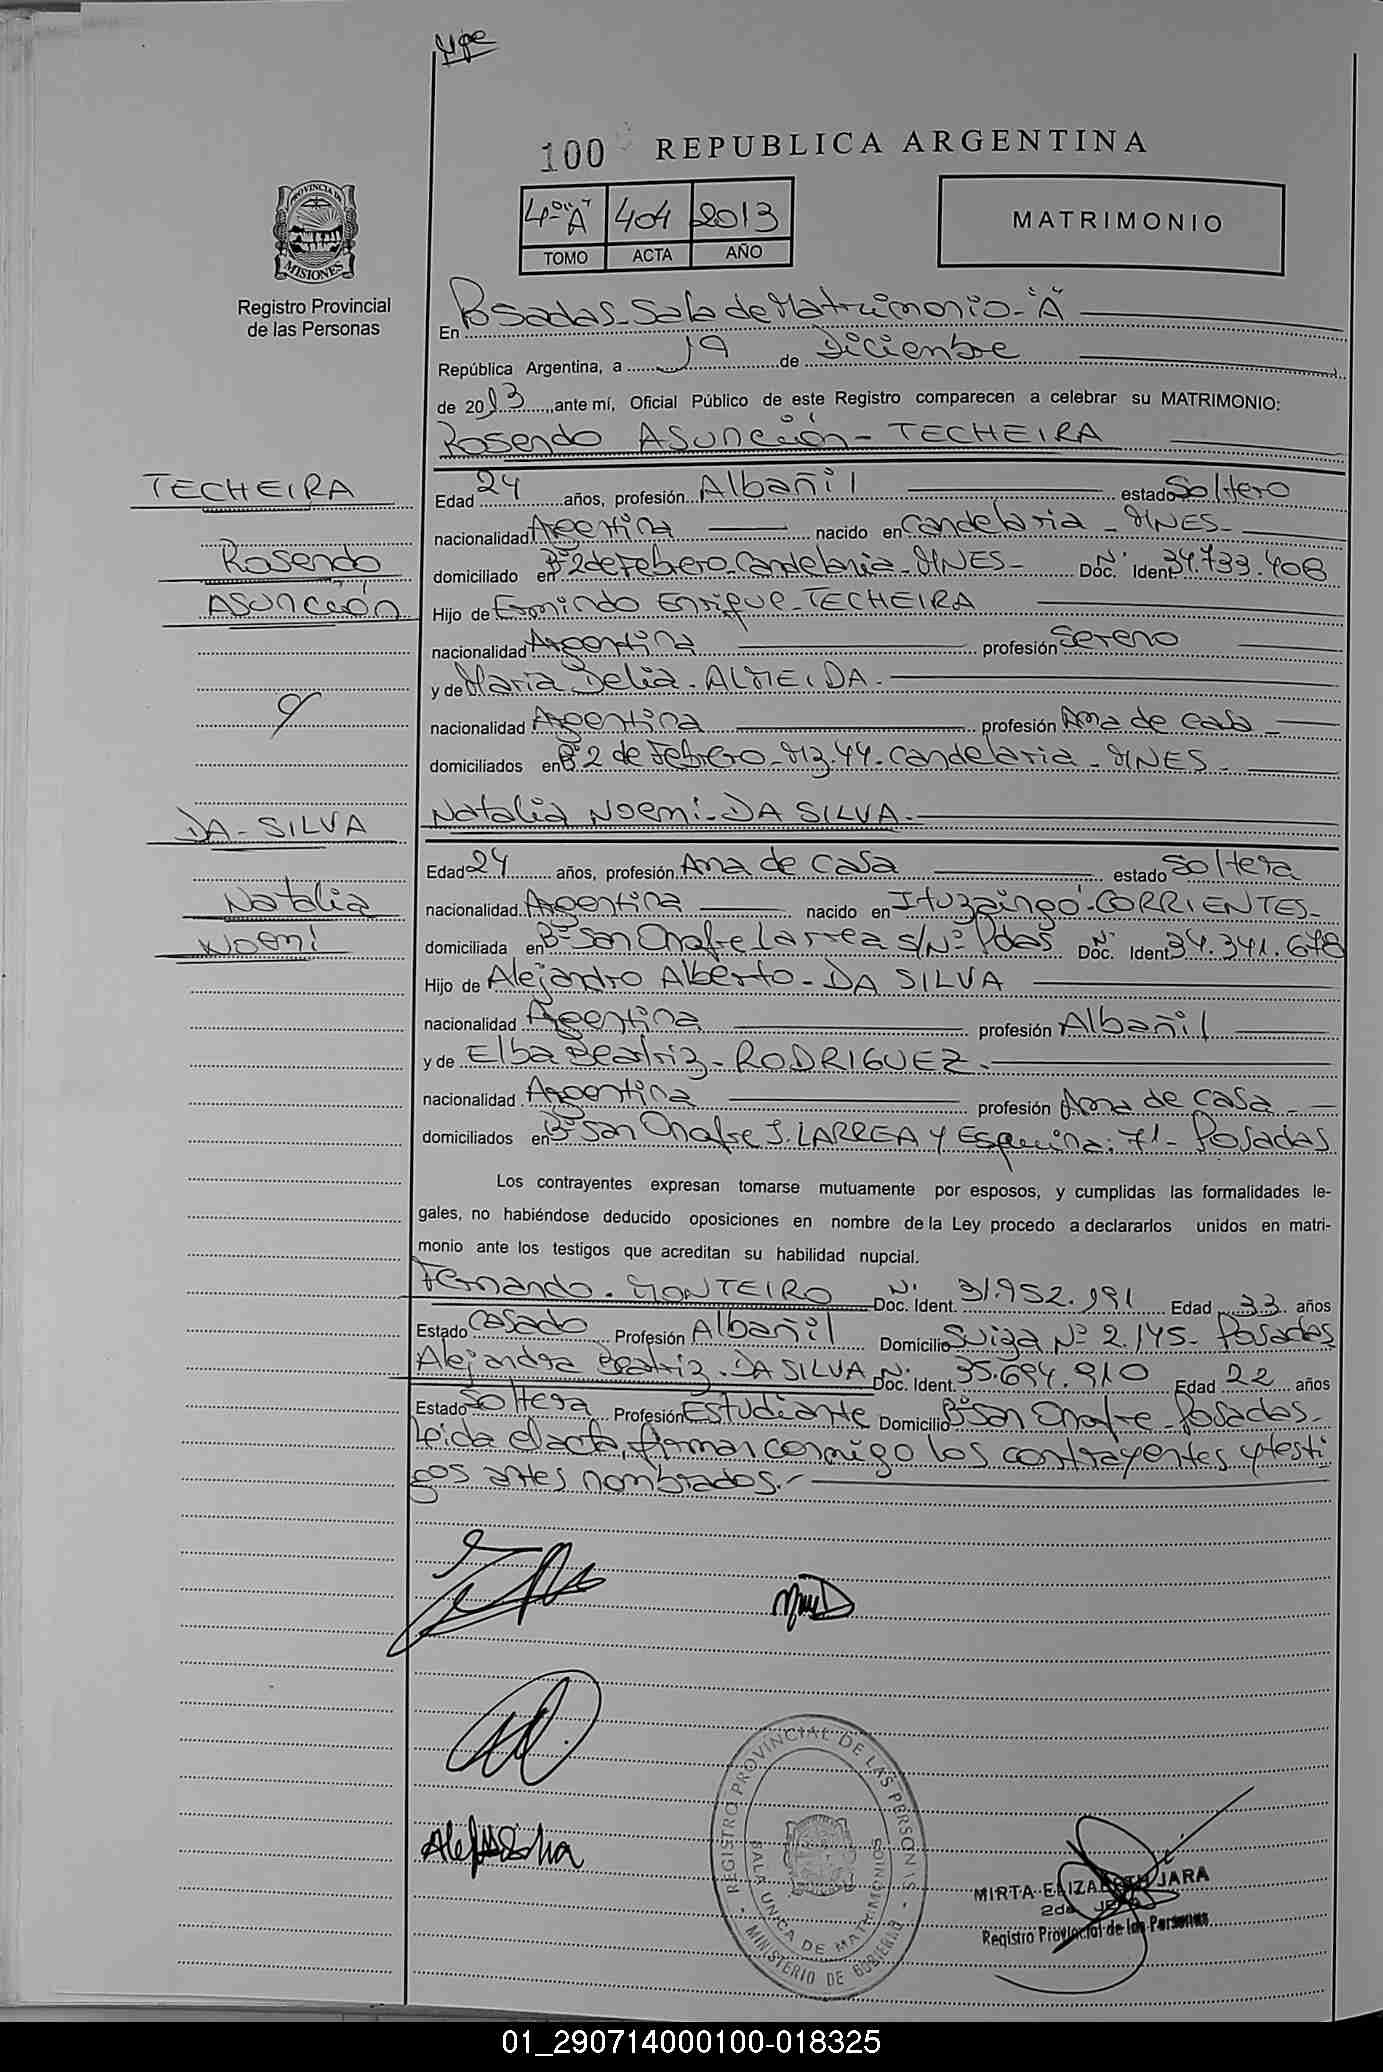 100 REPUBLICA ARGENTINA
4º "A" 404 2013
TOMO ACTA AÑO
MATRIMONIO
PROVINCIA DE
MISIONES
Registro Provincial
de las Personas
En Posadas-Sala de Matrimonio-"A"
República Argentina, a 19 de Diciembre
de 2013, ante mí, Oficial Público de este Registro comparecen a celebrar su MATRIMONIO:
Rosendo Asunción - TECHEIRA
TECHEIRA
Rosendo
Asunción
Edad 24 años, profesión Albañil estado Soltero
nacionalidad Argentina nacido en Candelaria - MNES-
domiciliado en Bº 2 de Febrero-Candelaria-MNES- Doc. Ident. Nº 34.733.408
Hijo de Ermindo Enrique-TECHEIRA
nacionalidad Argentina profesión Sereno
y de Maria Delia-ALMEIDA.
nacionalidad Argentina profesión Ama de casa -
domiciliados en Bº 2 de Febrero-Mz.44-Candelaria-MNES-
DA-SILVA
Natalia
Noemi
Natalia Noemi-DA SILVA-
Edad 24 años, profesión Ama de Casa estado Soltera
nacionalidad Argentina nacido en Ituzaingó-CORRIENTES-
domiciliada en Bº San Onofre Larrea s/Nº Pdas Doc. Ident. Nº 34.341.678
Hijo de Alejandro Alberto-DA SILVA
nacionalidad Argentina profesión Albañil
y de Elba Beatriz-RODRIGUEZ-
nacionalidad Argentina profesión Ama de Casa -
domiciliados en Bº San Onofre J. LARREA y Esquina: 71-Posadas
Los contrayentes expresan tomarse mutuamente por esposos, y cumplidas las formalidades le-
gales, no habiéndose deducido oposiciones en nombre de la Ley procedo a declararlos unidos en matri-
monio ante los testigos que acreditan su habilidad nupcial.
Fernando-MONTEIRO Doc. Ident. Nº 31.952.191 Edad 33 años
Estado Casado Profesión Albañil Domicilio Suiza Nº 2.145-Posadas
Alejandra Beatriz-DA SILVA Doc. Ident. Nº 35.694.910 Edad 22 años
Estado Soltera Profesión Estudiante Domicilio Bº San Onofre-Posadas-
Leida el acta, firman conmigo los contrayentes y testi
gos antes nombrados.-
REGISTRO PROVINCIAL DE LAS PERSONAS
SALA UNICA DE MATRIMONIOS
- MINISTERIO DE GOBIERNO -
MIRTA ELIZABETH JARA
2da JEFA
Registro Provincial de las Personas
01_290714000100-018325